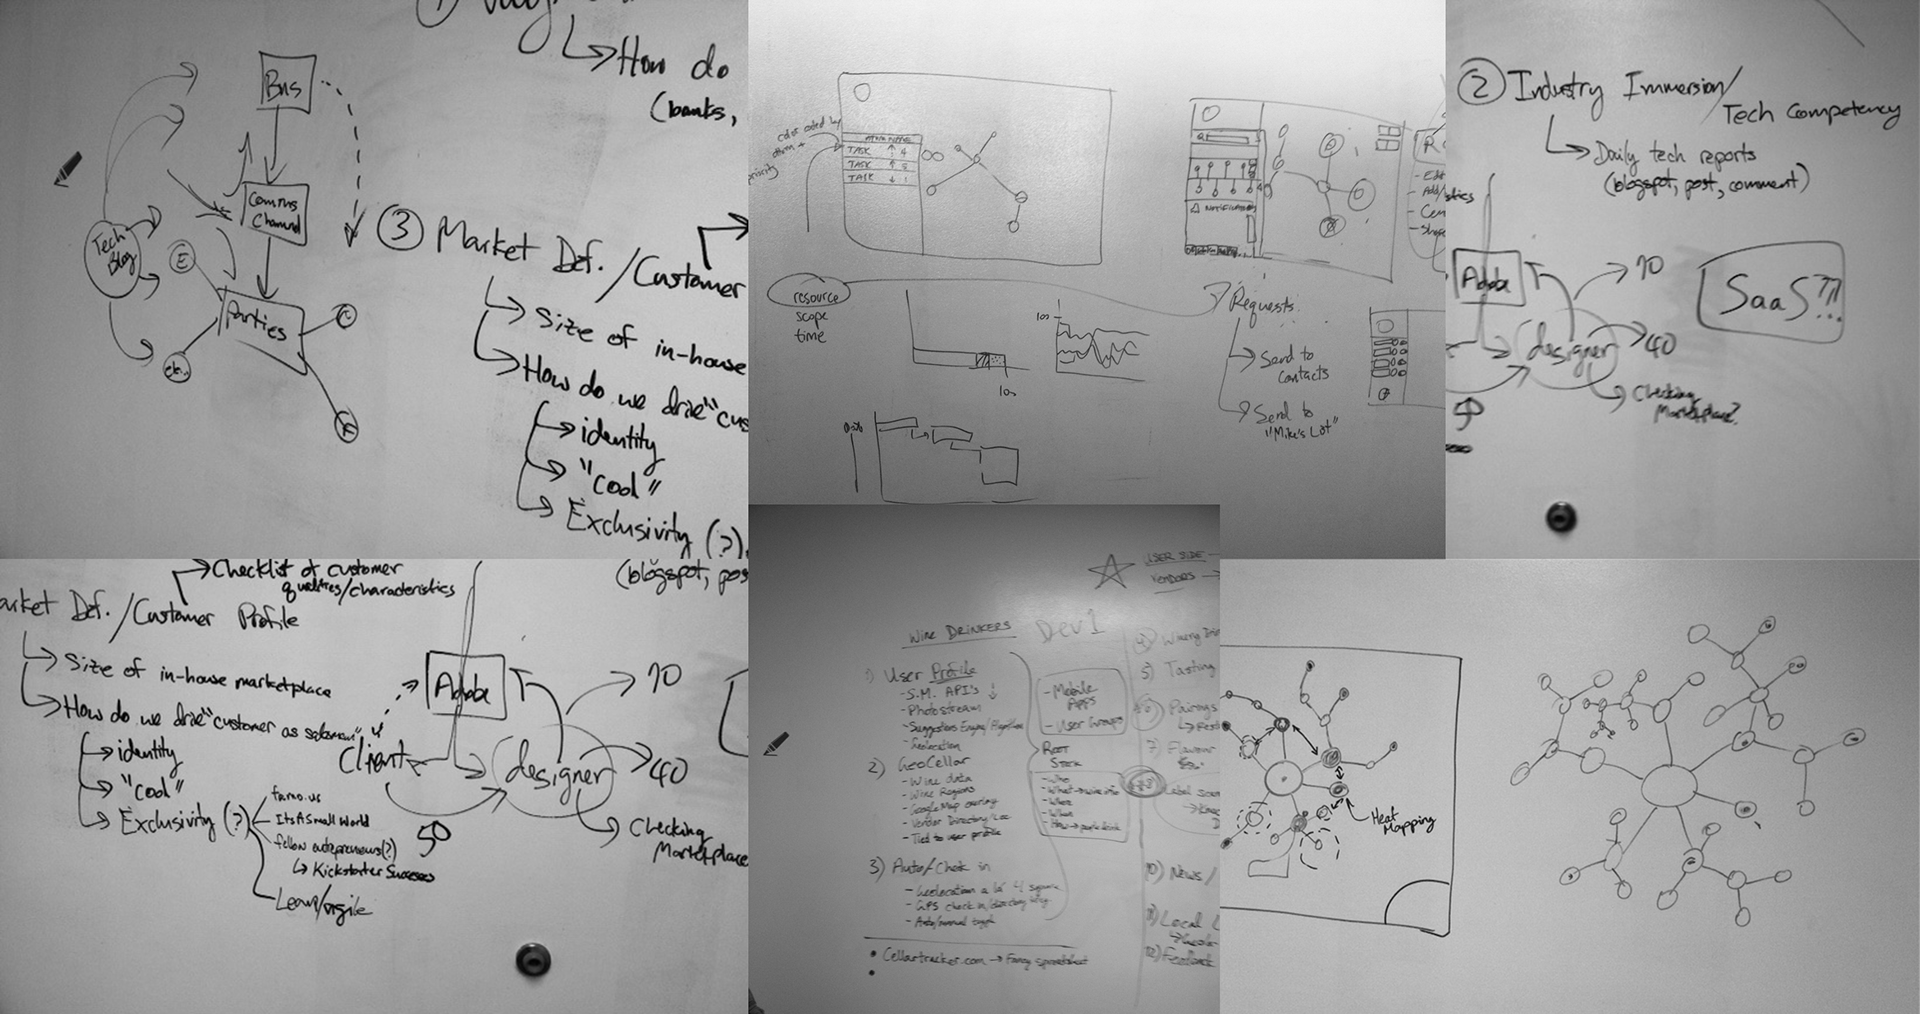 How do
(banks,
Bus
Comms
Channel
Tech
Blog
E
Parties
C
etc.
③ Market Def. /Customer
Size of in-house
How do we drive "cus
identity
"Cool"
Exclusivity (?)
color coded by
priority
TASK ↑ 4
TASK ↑
TASK ↓
resource
scope
time
Notifications
R
- Edit
- Add/
Requests
Send to
Contacts
Send to
"Mike's List"
② Industry Immersion/
Tech Competency
Daily tech reports
(blogspot, post, comment)
Adobe
70
SaaS???
designer
40
Checking
Marketplace?
50
Checklist of customer
qualities/characteristics
(blogspot, pos
arket Def. /Customer Profile
Size of in-house marketplace
How do we drive "customer as salesman"
identity
"Cool"
Exclusivity (?)
ItsASmallWorld
fellow entrepreneurs(?)
Kickstarter Successes
Lean/agile
Adobe
70
Client
designer
40
50
Checking
Marketplace
USER SIDE
VENDORS
WINE DRINKERS
Dev 1
1) User Profile
- S.M. API's
- Photostream
- Suggestions Engine/Algorithm
- Geolocation
2) GeoCellar
- Wine data
- Wine Regions
- Google Map overlay
- Vendor Directory/Loc
- Tied to user profile
3) Auto/Check in
- Geolocation a la 4 square
- GPS check in/directory
- Auto/manual toggle
• Cellartracker.com → Fancy spreadsheet
- Mobile
Apps
- User Groups
Root
Stock
- Who
- What → wine info
- Where
- When
- How → people drink
5) Tasting
Pairings
7) Flavour
Label scan
10) News/
11) Local
12) Feedback
Heat
Mapping